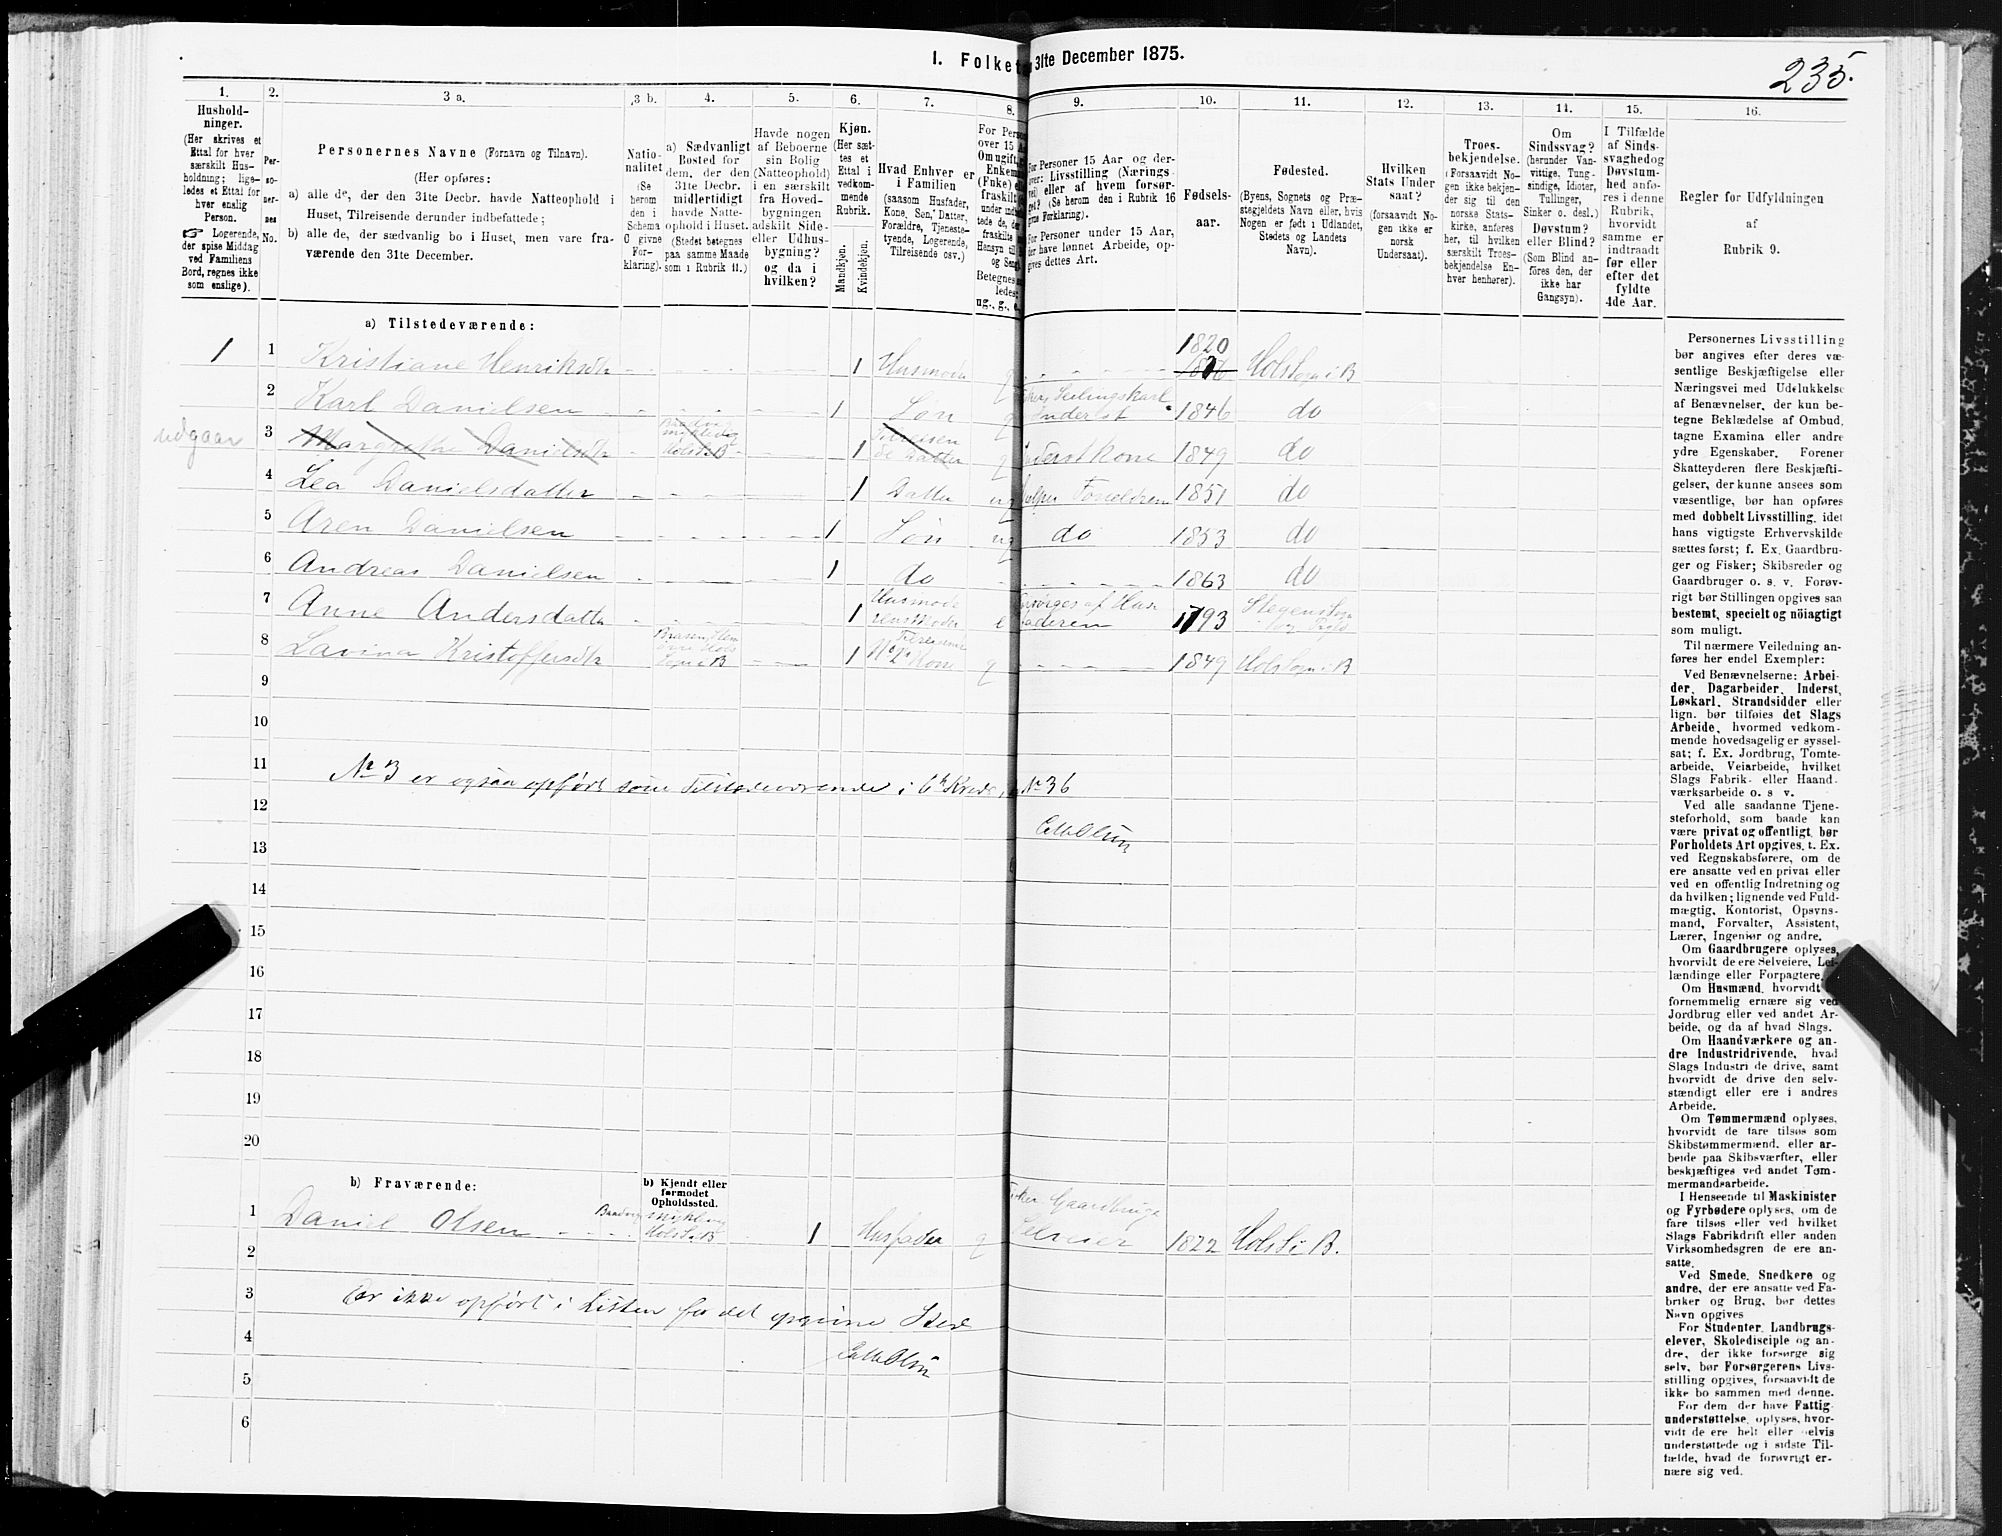 I. Folket
31te December 1875.
235.
1.
Hushold-
ninger.
(Her skrives et
Ettal for hver
særskilt Hus-
holdning; lige-
ledes et Ettal for
hver enslig
Person.
☞ Logerende,
der spise Middag
ved Familiens
Bord, regnes ikke
som enslige).
2.
Per-
so-
ner-
nes
No.
3 a.
Personernes Navne (Fornavn og Tilnavn).
(Her opføres:
a) alle de, der den 31te Decbr. havde Natteophold i
Huset, Tilreisende derunder indbefattede;
b) alle de, der sædvanlig bo i Huset, men vare fra-
værende den 31te December.
3 b.
Natio-
nalitet
(Se
herom
den i
Schema
C givne
For-
klaring).
4.
a) Sædvanligt
Bosted for
dem, der den
31te Decbr.
midlertidigt
havde Natte-
ophold i Huset.
(Stedet betegnes
paa samme Maade
som i Rubrik 11.)
5.
Havde nogen
af Beboerne
sin Bolig
(Natteophold)
i en særskilt
fra Hoved-
bygningen
adskilt Side-
eller Udhus-
bygning?
og da i
hvilken?
6.
Kjøn.
(Her sæt-
tes et
Ettal i
vedkom-
mende
Rubrik.
Mandkjøn.
Kvindekjøn.
7.
Hvad Enhver er
i Familien
(saasom Husfader,
Kone, Søn, Datter,
Forældre, Tjeneste-
tyende, Logerende,
Tilreisende osv.)
8.
For Pers
over 15 A
Om ugift,
Enkem
(Fnke) e
fraskilt
under ind
tede de,
fraskilte
Hensyn til
og Sen
Betegnes
ledes:
ug., g., e.
9.
For Personer 15 Aar og der-
over: Livsstilling (Nærings
vei) eller af hvem forsør-
get? (Se herom den i Rubrik 16
givne Forklaring).
For Personer under 15 Aar,
der have lønnet Arbeide, op-
gives dettes Art.
10.
Fødsels-
aar.
11.
Fødested.
(Byens, Sognets og Præ-
stegjeldets Navn eller, hvis
Nogen er født i Udlandet,
Stedets og Landets
Navn).
12.
Hvilken
Stats Under
saat?
(forsaavidt No-
gen ikke er
norsk
Undersaat).
13.
Troes-
bekjendelse.
(Forsaavidt No-
gen ikke bekjen-
der sig til den
norske Stats-
kirke, anføres
her, til hvilken
særskilt Troes-
bekjendelse En-
hver henhører).
14.
Om
Sindssvag?
(herunder Van-
vittige, Tung-
sindige, Idioter,
Tullinger,
Sinker o. desl.)
Døvstum?
eller Blind?
(Som Blind an-
føres den, der
ikke har
Gangsyn).
15.
I Tilfælde
af Sinds-
svaghedog
Døvstum-
hed anfø-
res i denne
Rubrik,
hvorvidt
samme er
indtraadt
før eller
efter det
fyldte
4de Aar.
16.
Regler for Udfyldningen
af
Rubrik 9.
a) Tilstedeværende:
1 1 Kristiane Henriksdtr 1 Husmoder g 1820 Holsogn i B
2 Karl Danielsen 1 Søn g Inderst 1846 do
udgaar 3 Margrethe Danielsdtr 1 Tilreisende Datter g Inderstkone 1849 do
4 Lea Danielsdatter 1 Datter ug hjelper Forældrene 1851 do
5 Aren Danielsen 1 Søn ug do 1853 do
6 Andreas Danielsen 1 do 1863 do
7 Anne Andersdatter 1 Husmoderens Moder e Forsørges af Husfaderen 1793
8 Lavina Kristoffersdtr 1 Kone g 1849 Holsogn i B
9
10
11
No 3 er ogsaa opført som Tilstedeværende i 6te Kreds, No 36
12
13
14
15
16
17
18
19
20
b) Fraværende:
b) Kjendt eller
formodet
Opholdssted.
1 Daniel Olsen 1 Husfader g Gaardbruger Selveier 1822 Hols i B.
2
3
Er ikke opført i Listen for det opgivne Sted
4
5
6
Personernes Livsstilling
bør angives efter deres væ-
sentlige Beskjæftigelse eller
Næringsvei med Udelukkelse
af Benævnelser, der kun be-
tegne Beklædelse af Ombud,
tagne Examina eller andre
ydre Egenskaber. Forener
Skatteyderen flere Beskjæfti-
gelser, der kunne ansees som
væsentlige, bør han opføres
med dobbelt Livsstilling, idet
hans vigtigste Erhvervskilde
sættes først; f. Ex. Gaardbru-
ger og Fisker; Skibsreder og
Gaardbruger o. s. v. Forøv-
rigt bør Stillingen opgives saa
bestemt, specielt og nöiagtigt
som muligt.
Til nærmere Veiledning an-
føres her endel Exempler:
Ved Benævnelserne: Arbei-
der, Dagarbeider, Inderst,
Løskarl, Strandsidder eller
lign. bør tilføies det Slags
Arbeide, hvormed vedkom-
mende hovedsagelig er syssel-
sat; f. Ex. Jordbrug, Tomte-
arbeide, Veiarbeide, hvilket
Slags Fabrik- eller Haand-
værksarbeide o. s. v.
Ved alle saadanne Tjene-
steforhold, som baade kan
være privat og offentligt, bør
Forholdets Art opgives, t. Ex.
ved Regnskabsførere, om de
ere ansatte ved en privat eller
ved en offentlig Indretning og
da hvilken; lignende ved Fuld-
mægtig, Kontorist, Opsyns-
mand, Forvalter, Assistent,
Lærer, Ingeniør og andre.
Om Gaardbrugere oplyses,
hvorvidt de ere Selveiere, Lei-
lændinge eller Forpagtere.
Om Husmænd, hvorvidt
fornemmelig ernære sig ved
Jordbrug eller ved andet Ar-
beide, og da af hvad Slags.
Om Haandværkere og an-
dre Industridrivende, hvad
Slags Industri de drive, samt
hvorvidt de drive den selv-
stændigt eller ere i andres
Arbeide.
Om Tømmermænd oplyses,
hvorvidt de fare tilsøs som
Skibstømmermænd, eller ar-
beide paa Skibsværfter, eller
beskjæftiges ved andet Tøm-
mermandsarbeide.
I Henseende til Maskinister
og Fyrbødere oplyses, om de
fare tilsøs eller ved hvilket
Slags Fabrikdrift eller anden
Virksomhedsgren de ere an-
satte.
Ved Smede, Snedkere og
andre, der ere ansatte ved Fa-
briker og Brug, bør dettes
Navn opgives
For Studenter, Landbrugs-
elever, Skoledisciple og an-
dre, der ikke forsørge sig
selv, bør Forsørgerens Livs-
stilling opgives, forsaavidt de
ikke bo sammen med denne.
For dem, der have Fattig-
understøttelse, oplyses, hvor-
vidt de ere helt eller delvis
understøttede og i sidste Til-
fælde, hvad de forøvrigt er-
nære sig ved.